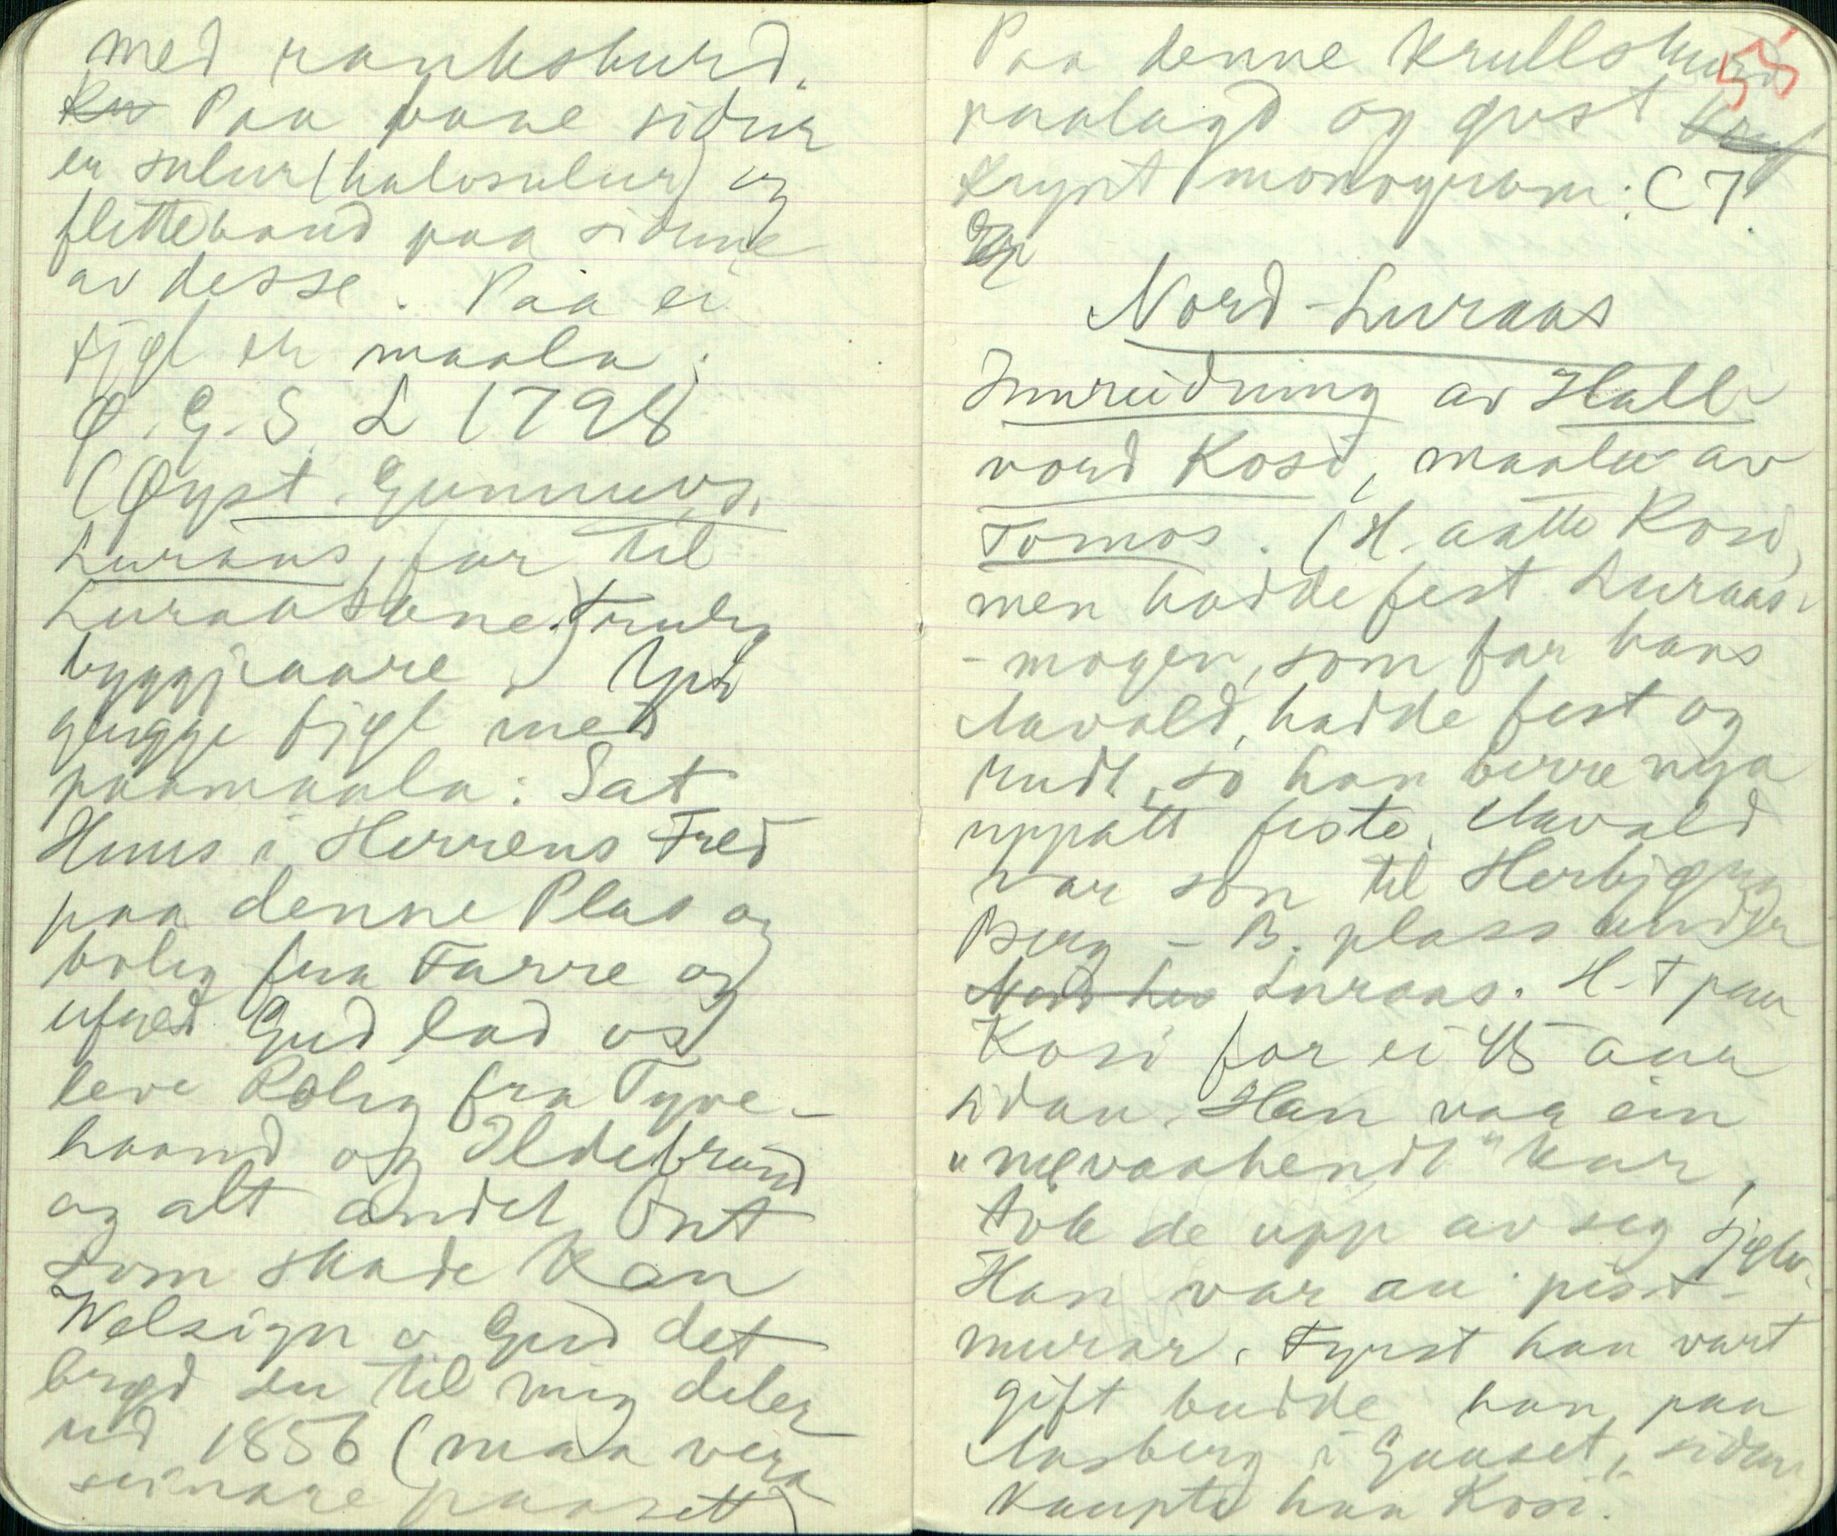 med rankskurd.
Paa baae sidur
er sulur (halvsulur) og
fletteband paa sidune
av desse. Paa ei
fjøl er maala:
Ø. G. S. L 1798
(Øyst. Gunnuvs.
Luraas, far til
Luraasane. Truleg
byggjaare.) Yvi
glugge fjøl med
paamaala: Sat
Huus i Herrens Fred
paa denne Plas og
bolig fra Farre og
ufred Gud lad os
leve Rolig fra Tyve-
haand og Ildebrand
og alt andet Ont
som skade kan
Welsign o Gud det
brød du til mig deler
ud 1856 (maa vera
seinare paasett)
55
Paa denne krullskurd
paalagd og øvst
krynt monogram: C 7.
Nord-Luraas
Innreidning av Hall-
vord Kosi, maala av
Tomos. (H. aatte Kosi,
men hadde fest Luraas-
-mogen, som far hans
Aavald, hadde fest og
rudt, so han berre nya
uppatt feste. Aavald
var son til Herbjørg
Berg - B. plass under
Luraas. H. † paa
Kosi for ei 45 aar
sidan. Han var ein
"nævaahendt" kar,
tok de upp av seg sjølv.
Han var au peis-
murar. Fyrst han vart
gift budde han paa
Aasberg i Gauset, sidan
kaupte han Kosi.